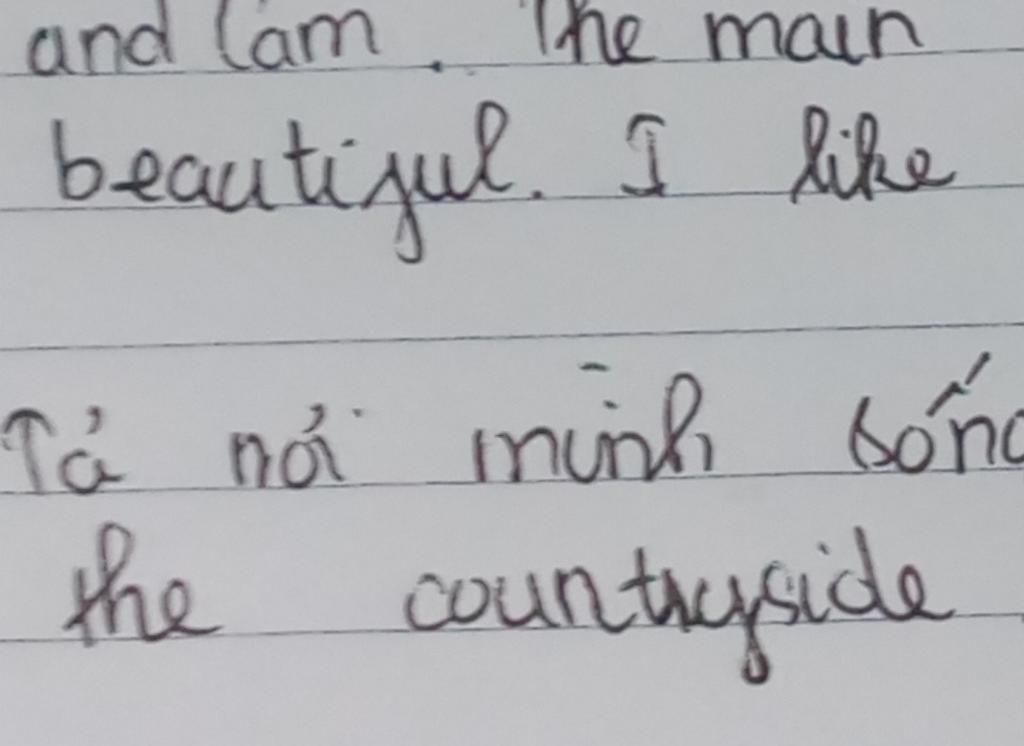 and Cam. The main
beautiful. I like
Tả nơi mình sống
the countryside